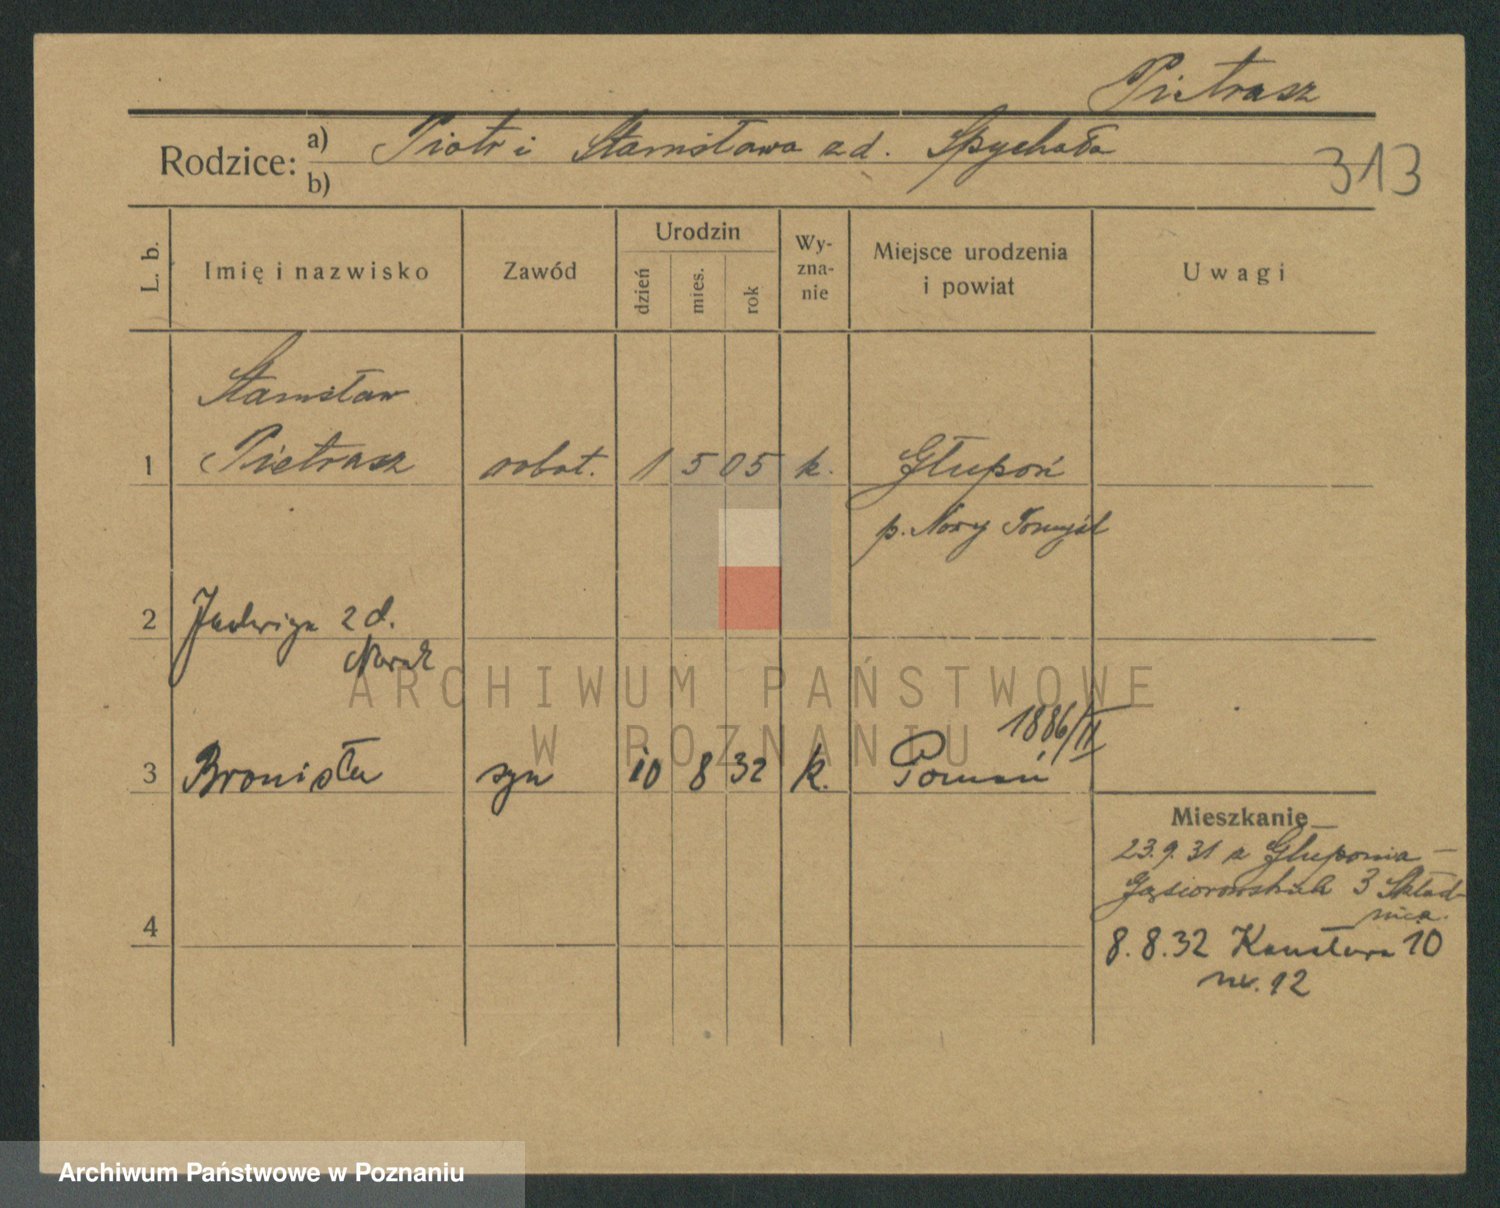 Pietrasz
Rodzice: a) Piotr i Stanisława zd. Spychała
b)
313
L. b.
Imię i nazwisko
Zawód
Urodzin
dzień
mies.
rok
Wy-
zna-
nie
Miejsce urodzenia
i powiat
Uwagi
Stanisław
1 Pietrasz robot. 1 5 05 k. Głupoń
p. Nowy Tomyśl
2 Jadwiga zd.
Nowak
1886/II
3 Bronisła syn 10 8 32 k. Poznań
Mieszkanie
23.9.31 z Głuponia –
Gąsiorowskich 3 Skład-
nica.
4
8.8.32 Kanałowa 10
m. 12
ARCHIWUM PAŃSTWOWE
W POZNANIU
Archiwum Państwowe w Poznaniu